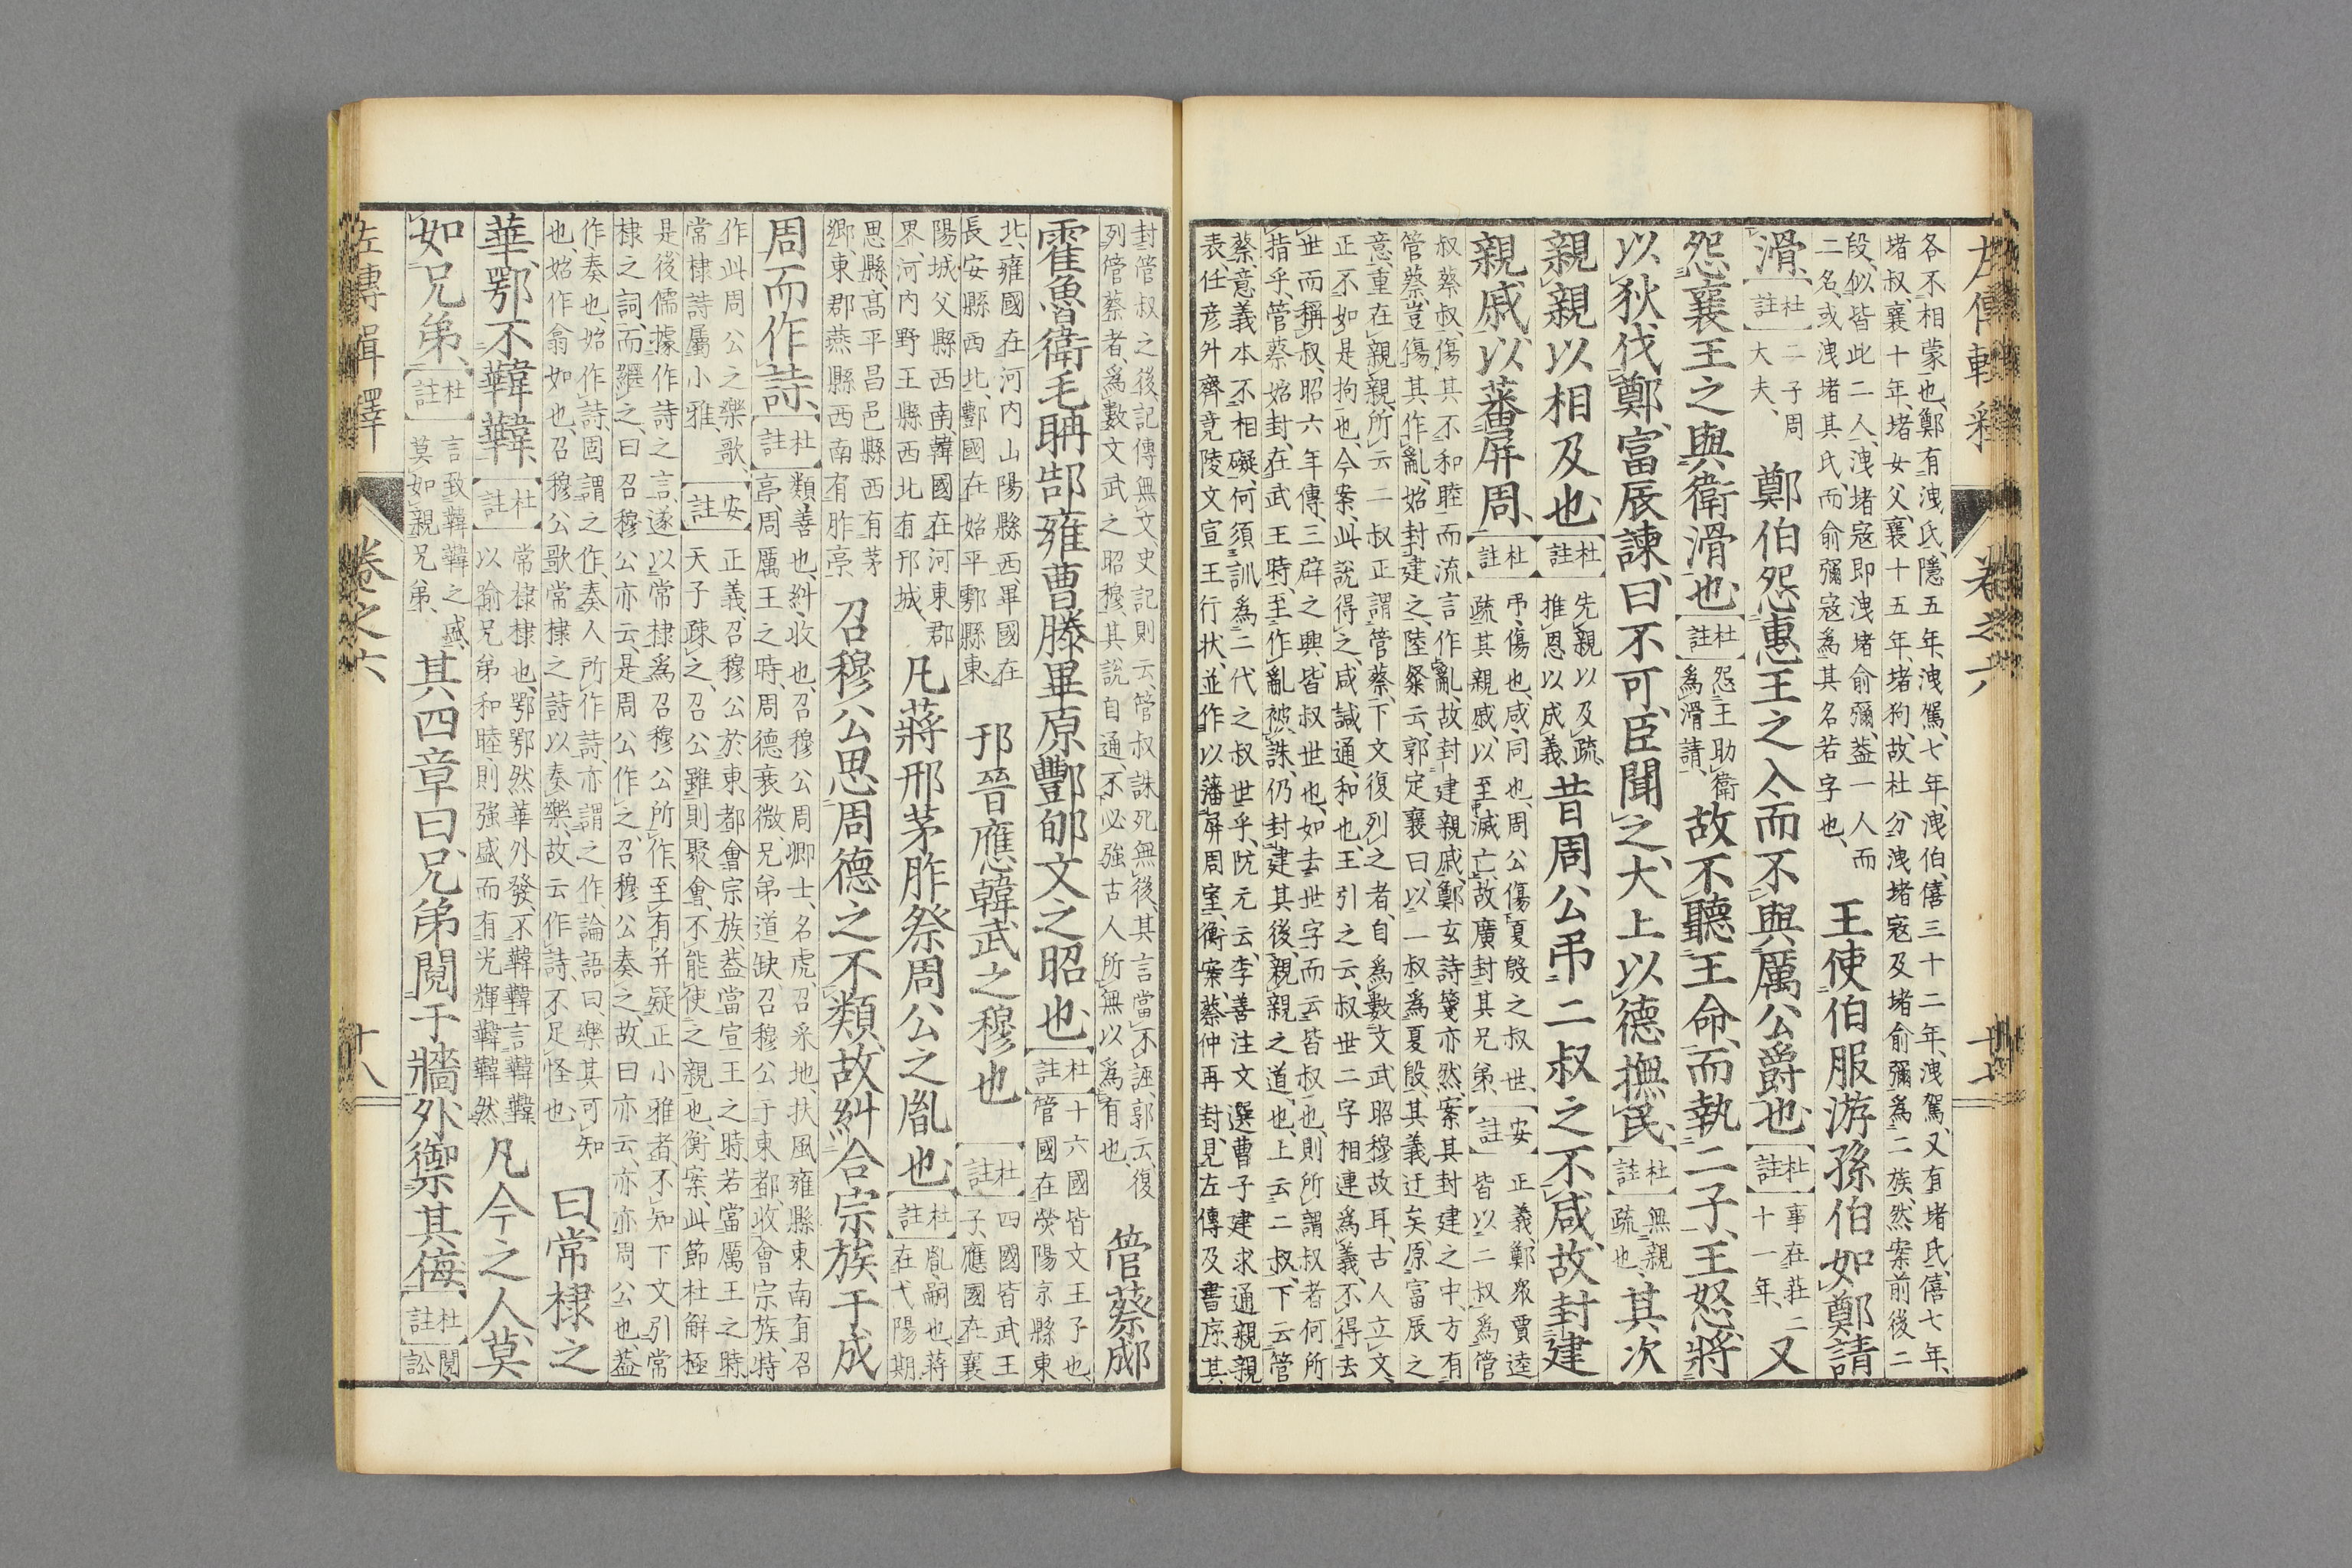 左傳輯釋 卷之六 十七
各不相蒙也、鄭有洩氏、隱五年、洩駕、七年、洩伯、僖三十二年、洩駕、又有堵氏、僖七年、
堵叔、襄十年、堵女父、襄十五年、堵狗、故杜分洩堵寇及堵俞彌爲二族、然案前後二
段、似皆此二人、洩堵寇即洩堵俞彌、蓋一人而
二名、或洩堵其氏、而俞彌寇爲其名若字也、
王使伯服游孫伯如鄭請
滑、
杜註
二子周
大夫、
鄭伯怨惠王之入而不與厲公爵也
杜註
事在莊二
十一年、
又
怨襄王之與衛滑也
杜註
怨王助衛
爲滑請、
故不聽王命、而執二子、王怒、將
以狄伐鄭、富辰諫、曰、不可、臣聞之、大上以德撫民、
杜註
無親
疏也、
其次
親親以相及也
杜註
先親以及疏、
推恩以成義、
昔周公弔二叔之不咸、故封建
親戚、以蕃屏周、
杜註
弔、傷也、咸、同也、周公傷夏殷之叔世、
疏其親戚、以至滅亡、故廣封其兄弟、
安註
正義、鄭衆賈逵
皆以二叔爲管
叔蔡叔、傷其不和睦而流言作亂、故封建親戚、鄭玄詩箋亦然、案其封建之中、方有
管蔡、豈傷其作亂、始封建之、陸粲云、郭定襄曰、以一叔爲夏殷、其義迂矣、原富辰之
意、重在親親、所云二叔正謂管蔡、下文復列之者、自爲數文武昭穆故耳、古人立文、
正不如是拘也、今案、此說得之、咸諴通、和也、王引之云、叔世二字相連爲義、不得去
世而稱叔、昭六年傳、三辟之興、皆叔世也、如去世字而云皆叔也、則所謂叔者何所
指乎、管蔡始封、在武王時、至作亂被誅、仍封建其後、親親之道也、上云二叔、下云管
蔡、意義本不相礙、何須訓爲二代之叔世乎、阮元云、李善注文選曹子建求通親親
表、任彥升齊竟陵文宣王行状、並作以藩屏周室、衡案、蔡仲再封、見左傳及書序、其
封管叔之後記傳無文、史記則云、管叔誅死無後、其言當不誣、郭云、復
列管蔡者、爲數文武之昭穆、其說自通、不必強古人所無以爲有也、
管蔡郕
霍魯衛毛聃郜雍曹滕畢原酆郇文之昭也
杜註
十六國皆文王子也、
管國在滎陽京縣東
北、雍國在河内山陽縣西、畢國在
長安縣西北、酆國在始平鄠縣東、
邘晉應韓武之穆也
杜註
四國皆武王
子、應國在襄
陽城父縣西南、韓國在河東郡
界、河内野王縣西北有邘城、
凡蔣邢茅胙祭周公之胤也
杜註
胤、嗣也、蔣
在弋陽期
思縣、高平昌邑縣西有茅
鄉、東郡燕縣西南有胙亭、
召穆公思周德之不類、故糾合宗族于成
周而作詩、
杜註
類、善也、糾、收也、召穆公周卿士、名虎、召采地、扶風雍縣東南有召
亭、周厲王之時、周德衰微、兄弟道缺、召穆公于東都、收會宗族、特
作此周公之樂歌、
常棣詩屬小雅、
安註
正義、召穆公於東都會宗族、蓋當宣王之時、若當厲王之時、
天子疎之、召公雖則聚會、不能使之親也、衡案、此節杜解極
是、後儒據作詩之言、遂以常棣爲召穆公所作、至有幷疑正小雅者、不知下文引常
棣之詞、而繼之、曰召穆公亦云、是周公作之、召穆公奏之、故曰亦云、亦亦周公也、蓋
作奏也、始作詩、固謂之作、奏人所作詩、亦謂之作、論語曰、樂其可知
也、始作翕如也、召穆公歌常棣之詩以奏樂、故云作詩、不足怪也、
曰、常棣之
華、鄂不韡韡、
杜註
常棣、棣也、鄂、鄂然華外發、不韡韡、言韡韡
以喻兄弟和睦、則強盛而有光輝韡韡然
凡今之人、莫
如兄弟、
杜註
言致韡韡之盛、
莫如親兄弟、
其四章曰、兄弟鬩于牆、外禦其侮、
杜註
鬩、
訟
左傳輯釋 卷之六 十八